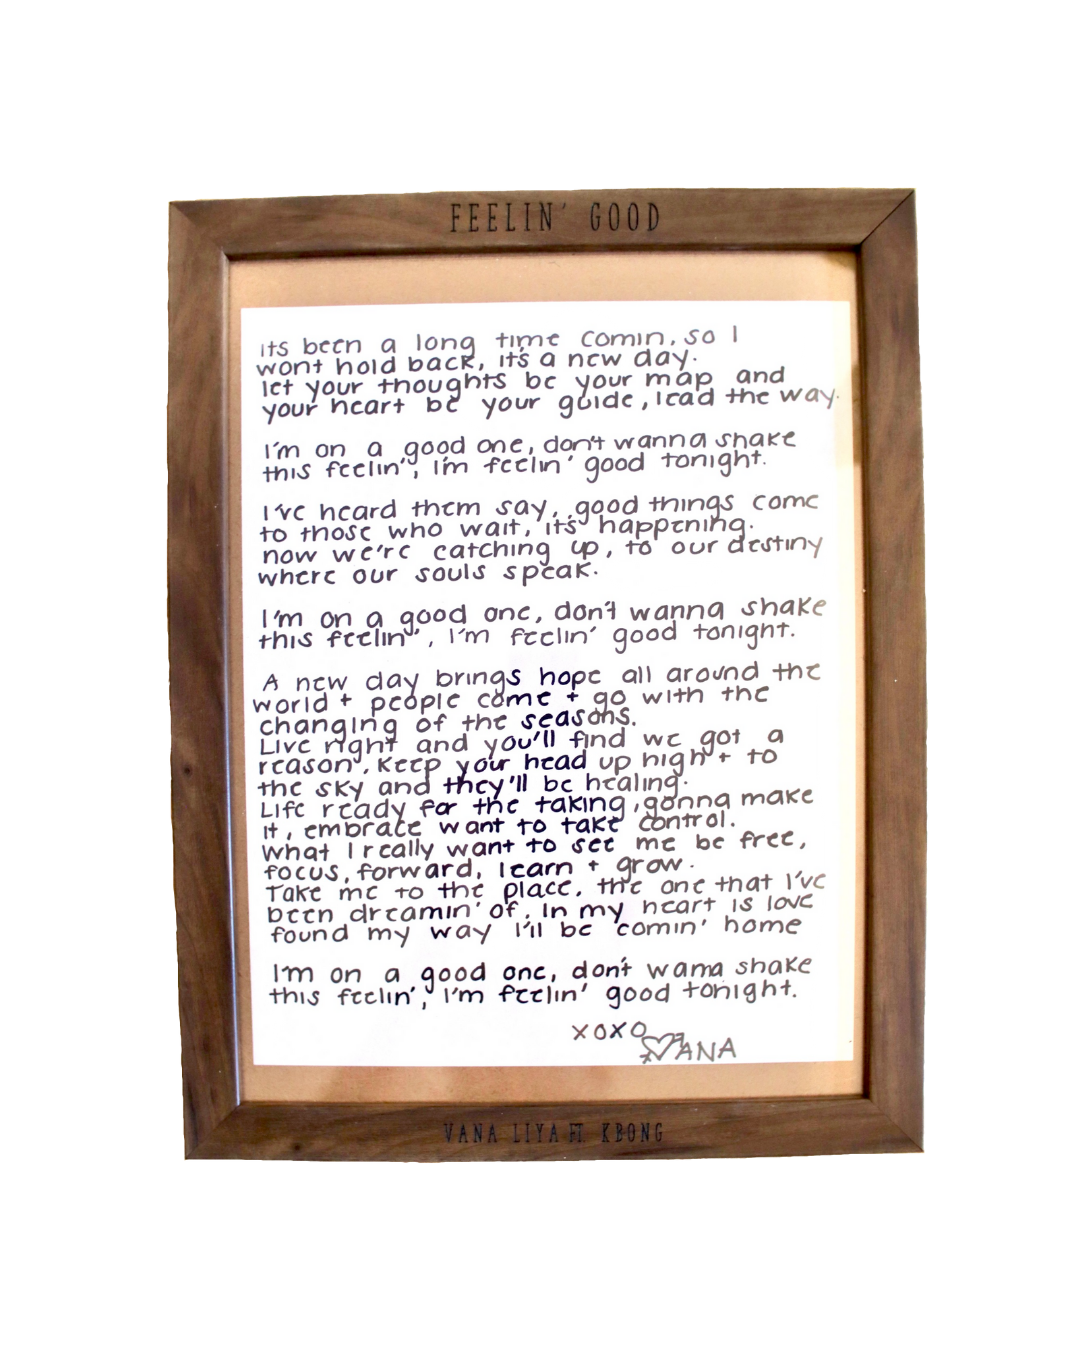 FEELIN' GOOD
its been a long time comin, so I
wont hold back, it's a new day.
let your thoughts be your map and
your heart be your guide, lead the way.
I'm on a good one, don't wanna shake
this feelin', I'm feelin' good tonight.
I've heard them say, good things come
to those who wait, it's happening.
now we're catching up, to our destiny
where our souls speak.
I'm on a good one, don't wanna shake
this feelin', I'm feelin' good tonight.
A new day brings hope all around the
world + people come + go with the
changing of the seasons.
Live right and you'll find we got a
reason, keep your head up high + to
the sky and they'll be healing.
Life ready for the taking, gonna make
it, embrace want to take control.
what I really want to see me be free,
focus, forward, learn + grow.
Take me to the place, the one that I've
been dreamin' of, In my heart is love
found my way I'll be comin' home
I'm on a good one, don't wanna shake
this feelin', I'm feelin' good tonight.
xoxo
VANA
VANA LIYA FT KBONG